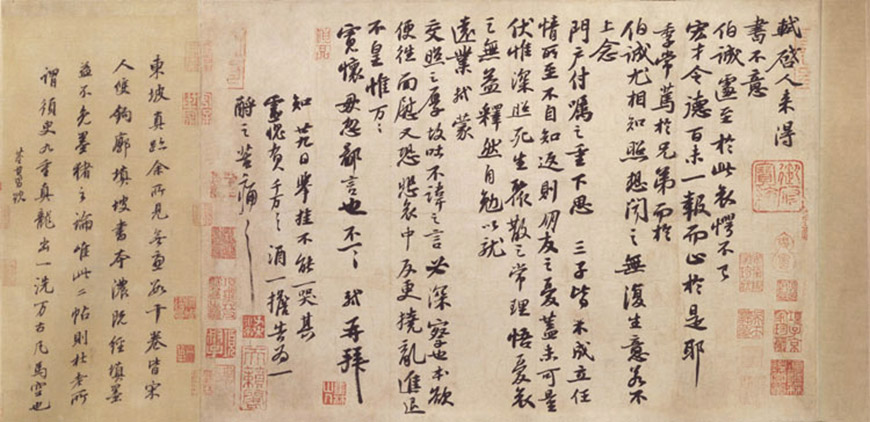 軾啓人來得
書不意
伯誠遽至於此哀愕不已
宏才令德百未一報而止於是耶
季常篤於兄弟而於
伯誠尤相知照想聞之無復生意若不
上念
門戶付囑之重下思三子皆不成立任
情所至不自知返則朋友之憂蓋未可量
伏惟深照死生聚散之常理悟憂哀
之無益釋然自勉以就
遠業軾蒙
交照之厚故吐不諱之言必深察也本欲
便往面慰又恐悲哀中反更撓亂進退
不皇惟萬萬
寬懷毋忽鄙言也不一一軾再拜
知廿九日舉掛不能一哭其
靈愧負千万千万酒一擔告為一
酹之苦痛苦痛
東坡真跡余所見無慮數十卷皆宋
人雙鉤廓填坡書本濃既經填墨
益不免墨豬之論唯此二帖則杜老所
謂須臾九重真龍出一洗万古凡馬空也
董其昌題